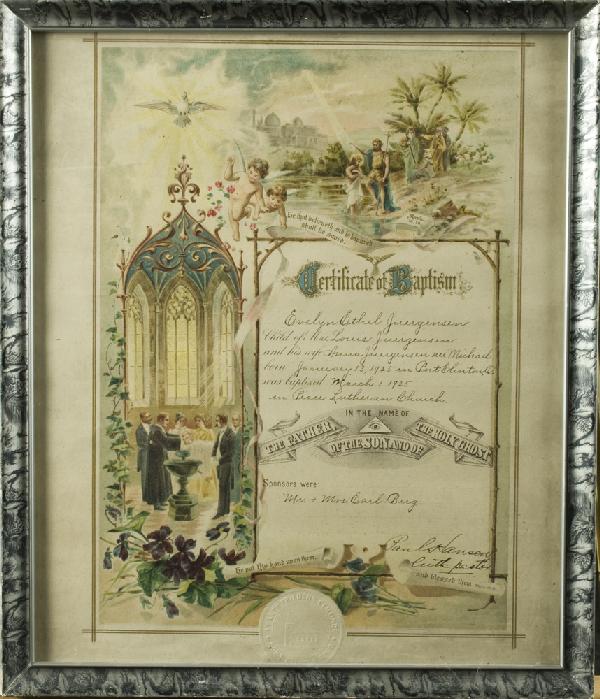 He that believeth and is baptized
shall be saved.
Certificate of Baptism
Evelyn Ethel Juergensen
Child of the Louis Juergensen
and his wife Anna Juergensen nee Michael
born January 12, 1925 in Port Clinton
was baptised March 1 1925
in Peace Lutheran Church
IN THE NAME OF
THE FATHER, OF THE SON AND OF THE HOLY GHOST
Sponsors were:
Mr. + Mrs Carl Berg
Paul Hansen
Luth pastor
He put His hand upon them,
and blessed them